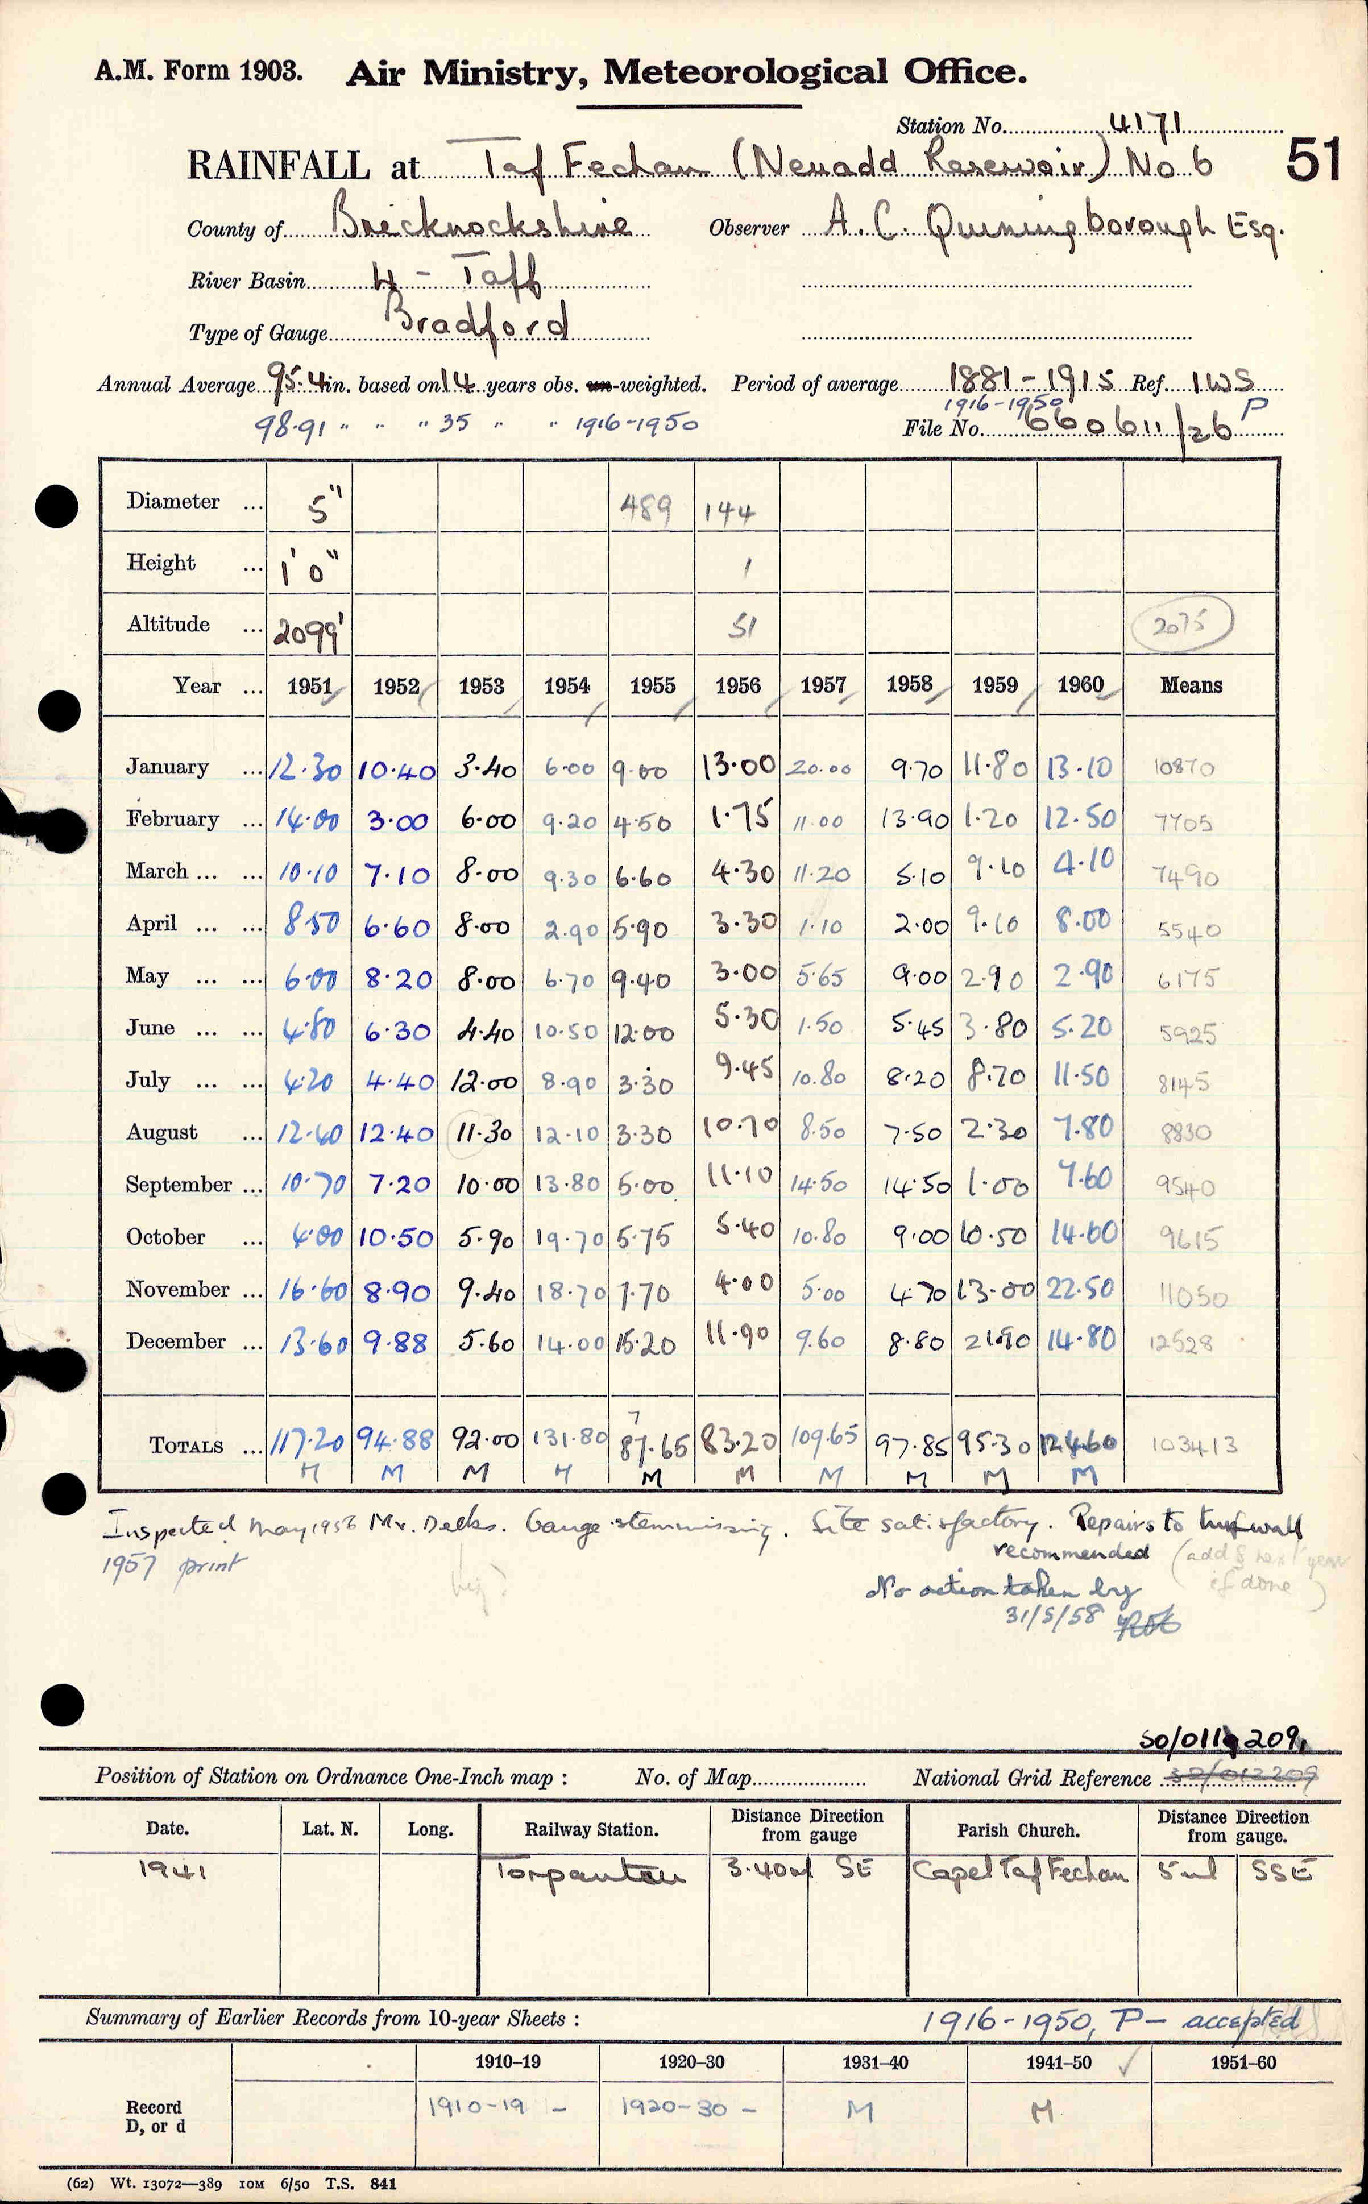 A.M. Form 1903. Air Ministry, Meteorological Office.
Station No. 4171
RAINFALL at Taf Fechan (Neuadd Reservoir) No 6 51
County of Brecknockshire Observer A. C. Quiningborough Esq.
River Basin 4 - Taff
Type of Gauge Bradford
Annual Average 95.4 in. based on 14 years obs. un-weighted. Period of average 1881-1915 Ref. IWS
98.91 " " " 35 " " 1916-1950 1916-1950 P
File No. 660611/26
Diameter ... 5" 489 144
Height ... 1'0" 1
Altitude ... 2099' 51 2075
Year ... 1951 1952 1953 1954 1955 1956 1957 1958 1959 1960 Means
January ... 12.30 10.40 3.40 6.00 9.00 13.00 20.00 9.70 11.80 13.10 10870
February ... 14.00 3.00 6.00 9.20 4.50 1.75 11.00 13.90 1.20 12.50 7705
March ... ... 10.10 7.10 8.00 9.30 6.60 4.30 11.20 5.10 9.10 4.10 7490
April ... ... 8.50 6.60 8.00 2.90 5.90 3.30 1.10 2.00 9.10 8.00 5540
May ... ... 6.00 8.20 8.00 6.70 9.40 3.00 5.65 9.00 2.90 2.90 6175
June ... ... 4.80 6.30 4.40 10.50 12.00 5.30 1.50 5.45 3.80 5.20 5925
July ... ... 4.20 4.40 12.00 8.90 3.30 9.45 10.80 8.20 8.70 11.50 8145
August ... 12.40 12.40 11.30 12.10 3.30 10.70 8.50 7.50 2.30 7.80 8830
September ... 10.70 7.20 10.00 13.80 5.00 11.10 14.50 14.50 1.00 7.60 9540
October ... 4.00 10.50 5.90 19.70 5.75 5.40 10.80 9.00 10.50 14.60 9615
November ... 16.60 8.90 9.40 18.70 7.70 4.00 5.00 4.70 13.00 22.50 11050
December ... 13.60 9.88 5.60 14.00 15.20 11.90 9.60 8.80 21.90 14.80 12528
7
TOTALS ... 117.20 94.88 92.00 131.80 87.65 83.20 109.65 97.85 95.30 124.60 103413
M M M M M M M M M M
Inspected May 1956 Mr. Deeks. Gauge stem missing. Site satisfactory. Repairs to turf wall
1957 print recommended (add & next year
No action taken by if done)
31/5/58
SO/011 209
Position of Station on Ordnance One-Inch map : No. of Map National Grid Reference 32/012209
Date. Lat. N. Long. Railway Station. Distance Direction from gauge Parish Church. Distance Direction from gauge.
1941 Torpantau 3.40ml SE Capel Taf Fechan 5ml SSE
Summary of Earlier Records from 10-year Sheets : 1916-1950, P - accepted
1910-19 1920-30 1931-40 1941-50 1951-60
Record D, or d 1910-19 - 1920-30 - M M
(62) Wt. 13072—389 10M 6/50 T.S. 841